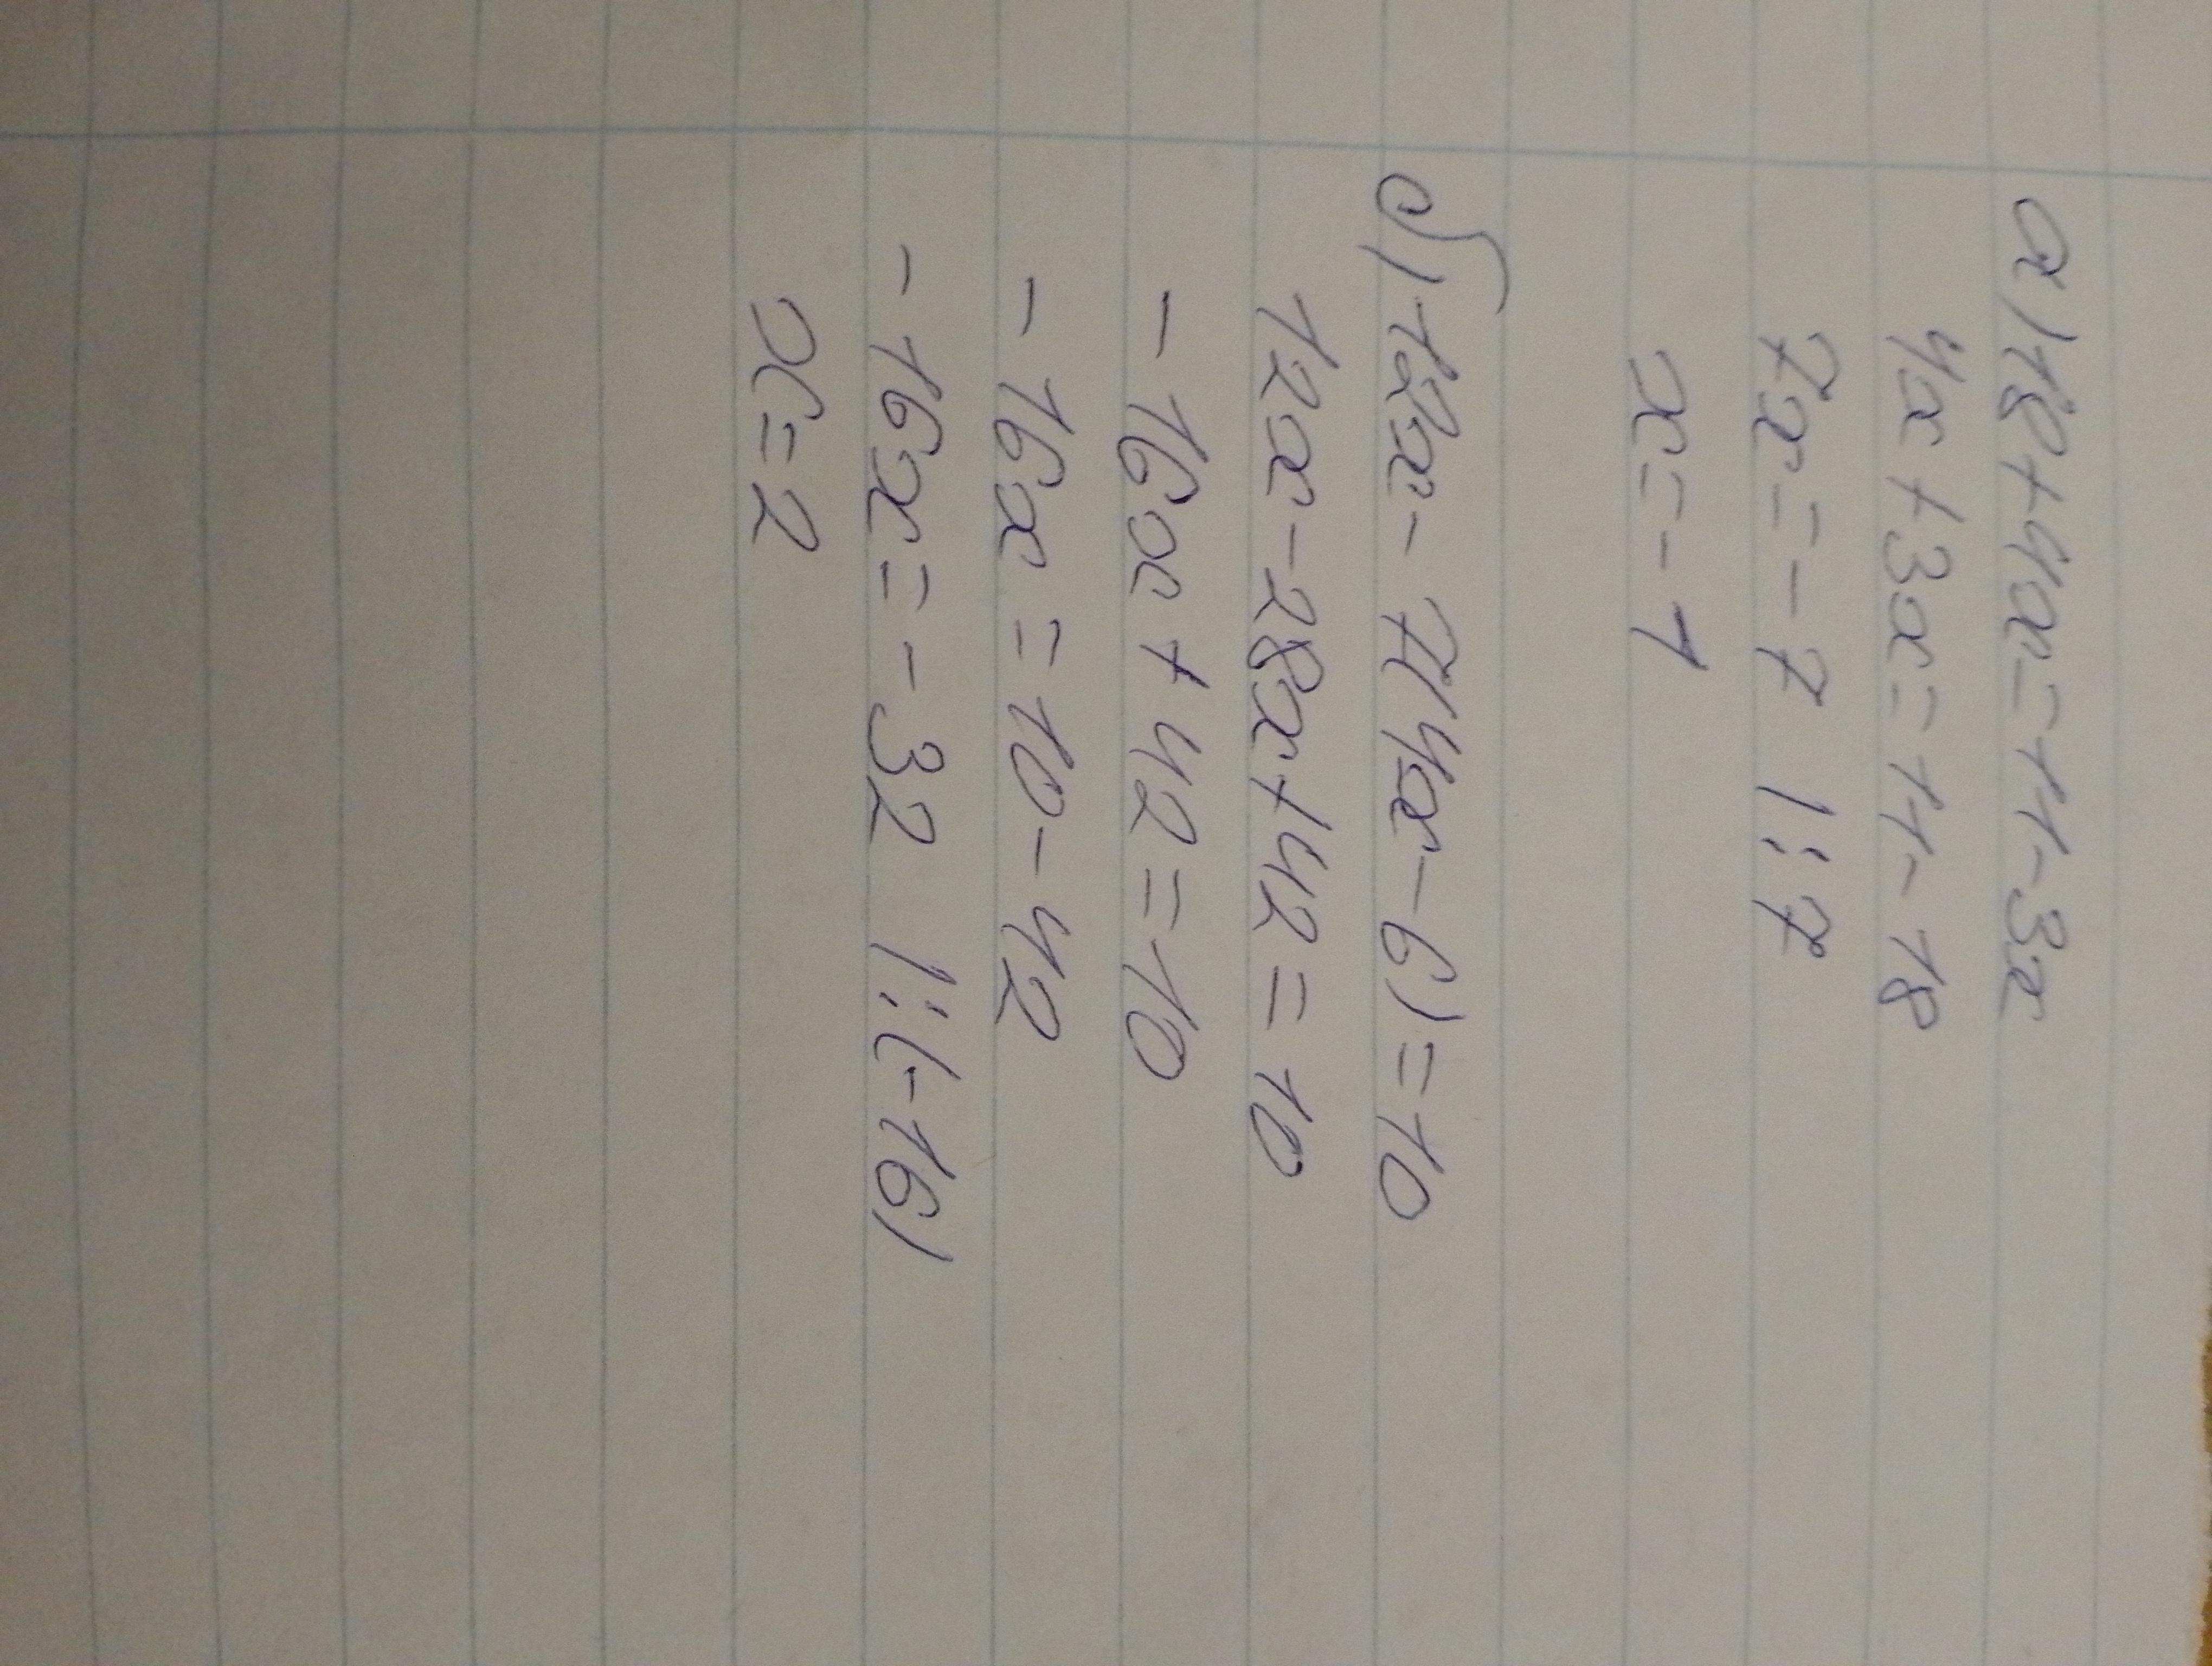 а) 18+4x=11-3x
4x+3x=11-18
7x=-7 |:7
x=-1
б) 12x-7(4x-6)=10
12x-28x+42=10
-16x+42=10
-16x=10-42
-16x=-32 |:(-16)
x=2